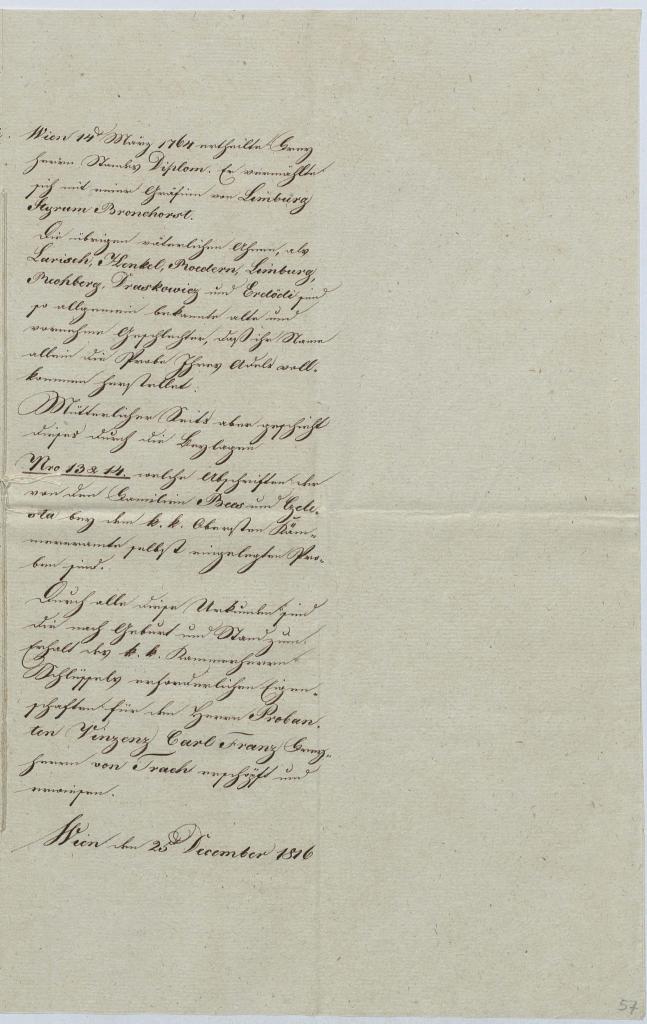 Wien 14t März 1764 ertheilte Frey
herrn Stands Diplom. Er vermählte
sich mit einer Gräfinn von Limburg
Styrum Bronchorst.
Die übrigen väterlichen Ahnen, als
Larisch, Henkel, Roedern, Limburg,
Rechberg, Draskowicz und Erdödi sind
so allgemein bekannte alte und
vornehme Geschlechter, daß ihr Name
allein die Probe Ihres Adels voll-
kommen herstellet.
Mütterlicher Seits aber geschieht
dieses durch die Beylagen
Nro 13 & 14. welche Abschriften der
von den Familien Bees und
bey dem k. k. Obersten Käm-
mereramte selbst eingelegten Pro-
ben sind.
Durch alle diese Urkunden sind
die nach Geburt und Stand zum
Erhalt des k. k. Kammerherrn
Schlüssels erforderlichen Eigen-
schaften für den Herrn Proban-
ten Vinzenz Carl Franz Frey-
herrn von Trach erschöpft und
erwiesen.
Wien den 25t December 1816
57